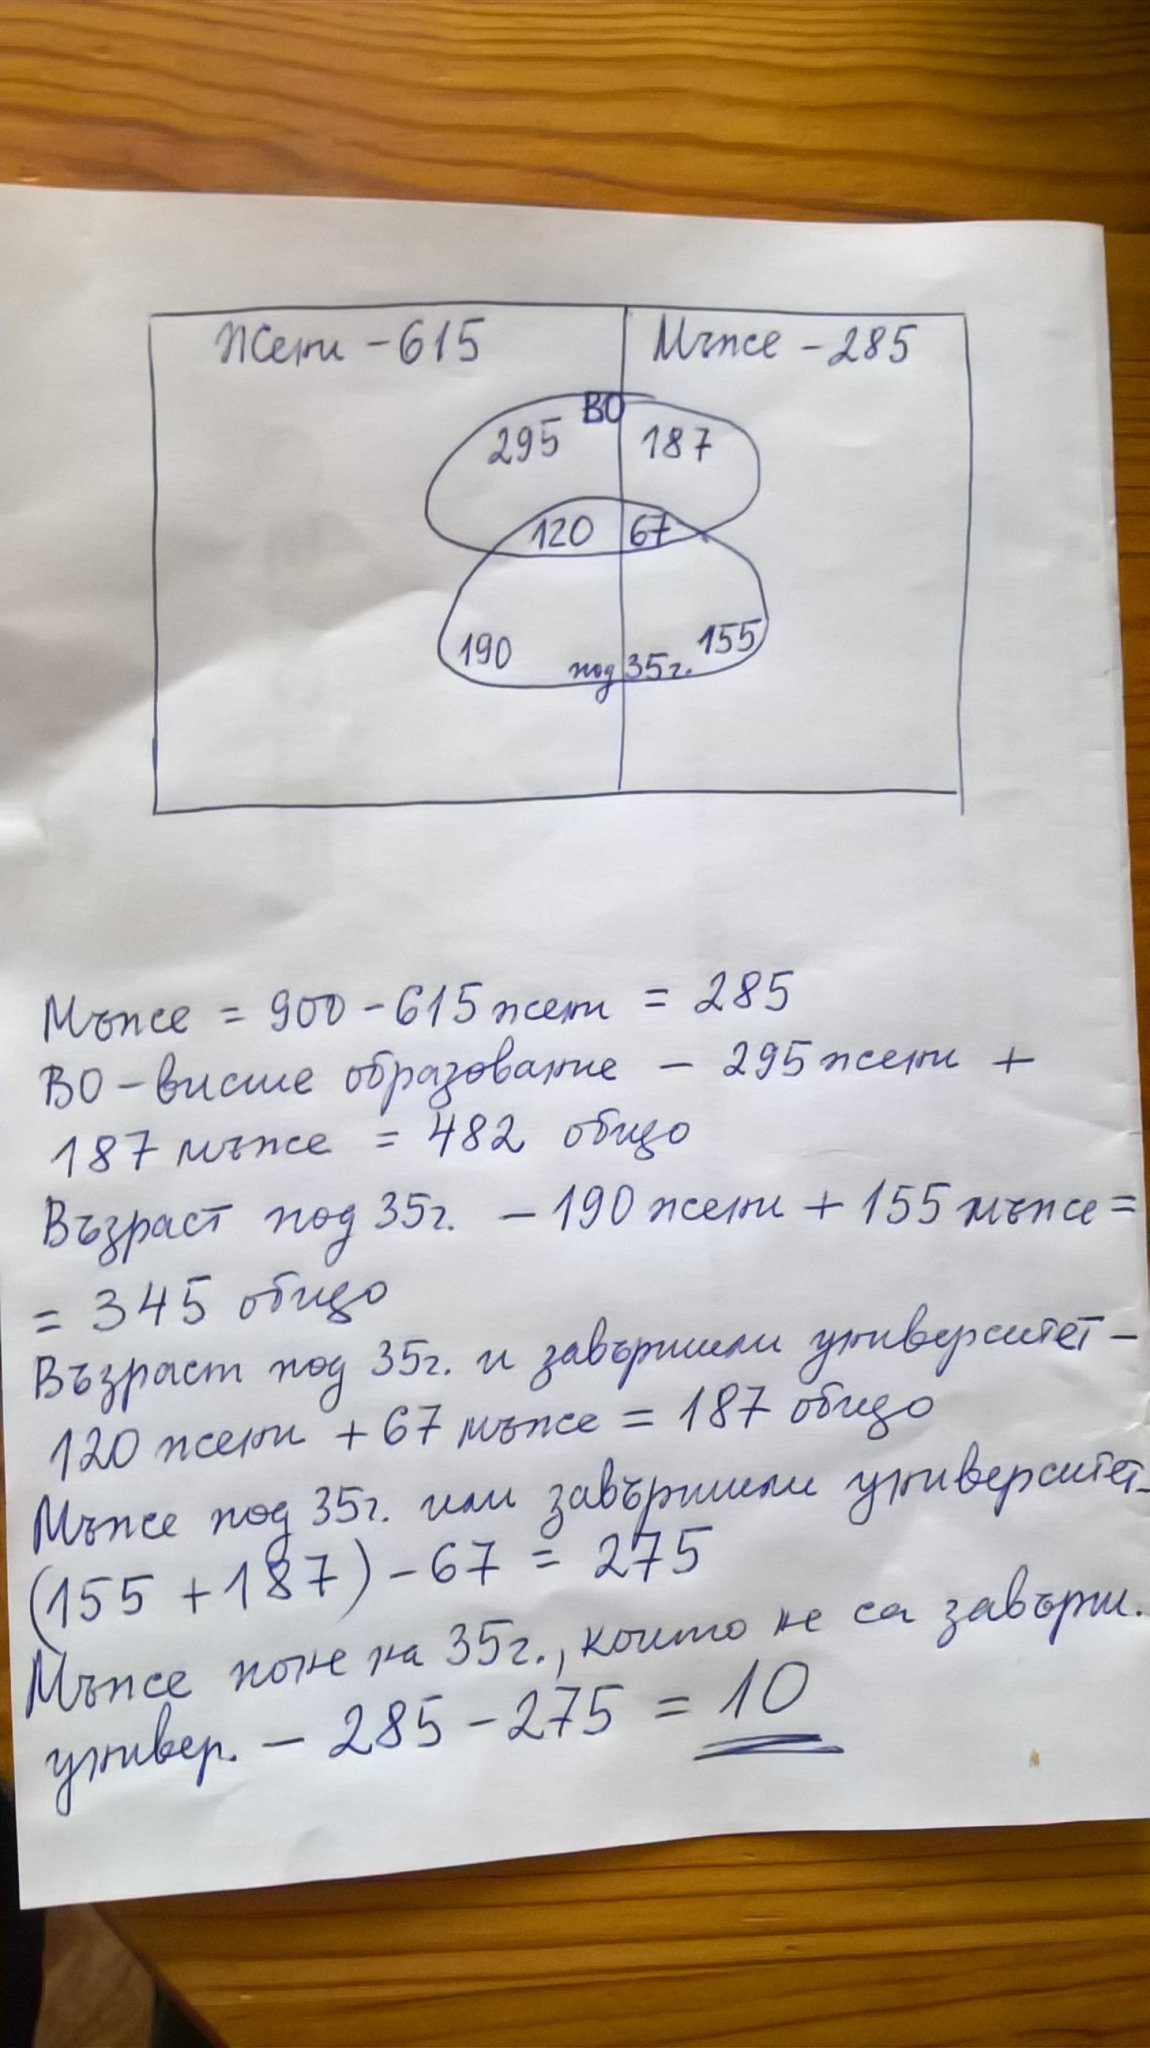 Жени - 615
Мъже - 285
ВО
295
187
120
67
190
155
под 35г.
Мъже = 900 - 615 жени = 285
ВО - висше образование - 295 жени +
187 мъже = 482 общо
Възраст под 35г. - 190 жени + 155 мъже =
= 345 общо
Възраст под 35г. и завършили университет -
120 жени + 67 мъже = 187 общо
Мъже под 35г. или завършили университет -
(155 + 187) - 67 = 275
Мъже поне на 35г., които не са завърш.
универ. - 285 - 275 = 10